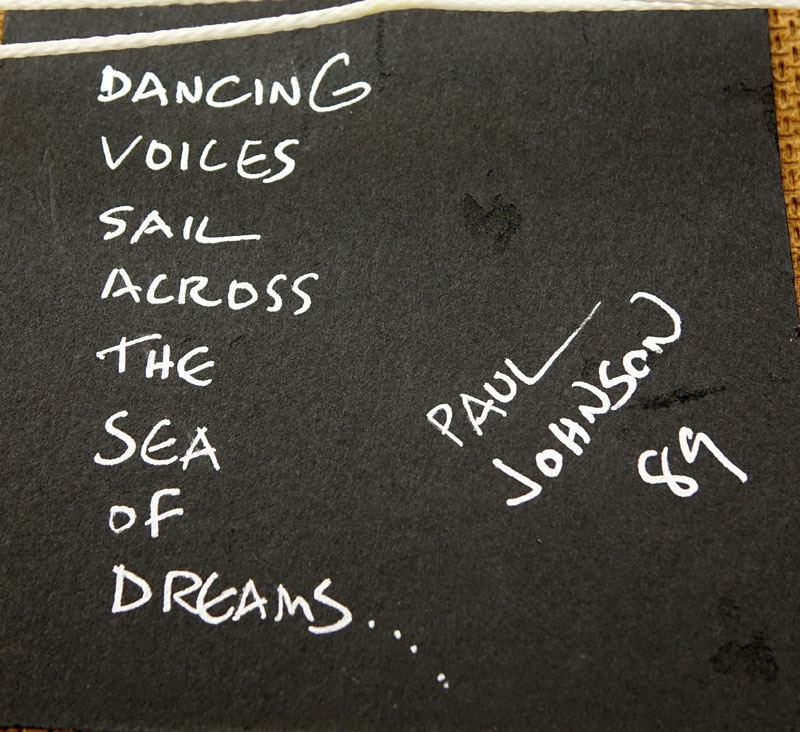 DANCING
VOICES
SAIL
ACROSS
THE
SEA
OF
DREAMS....
PAUL
JOHNSON
89